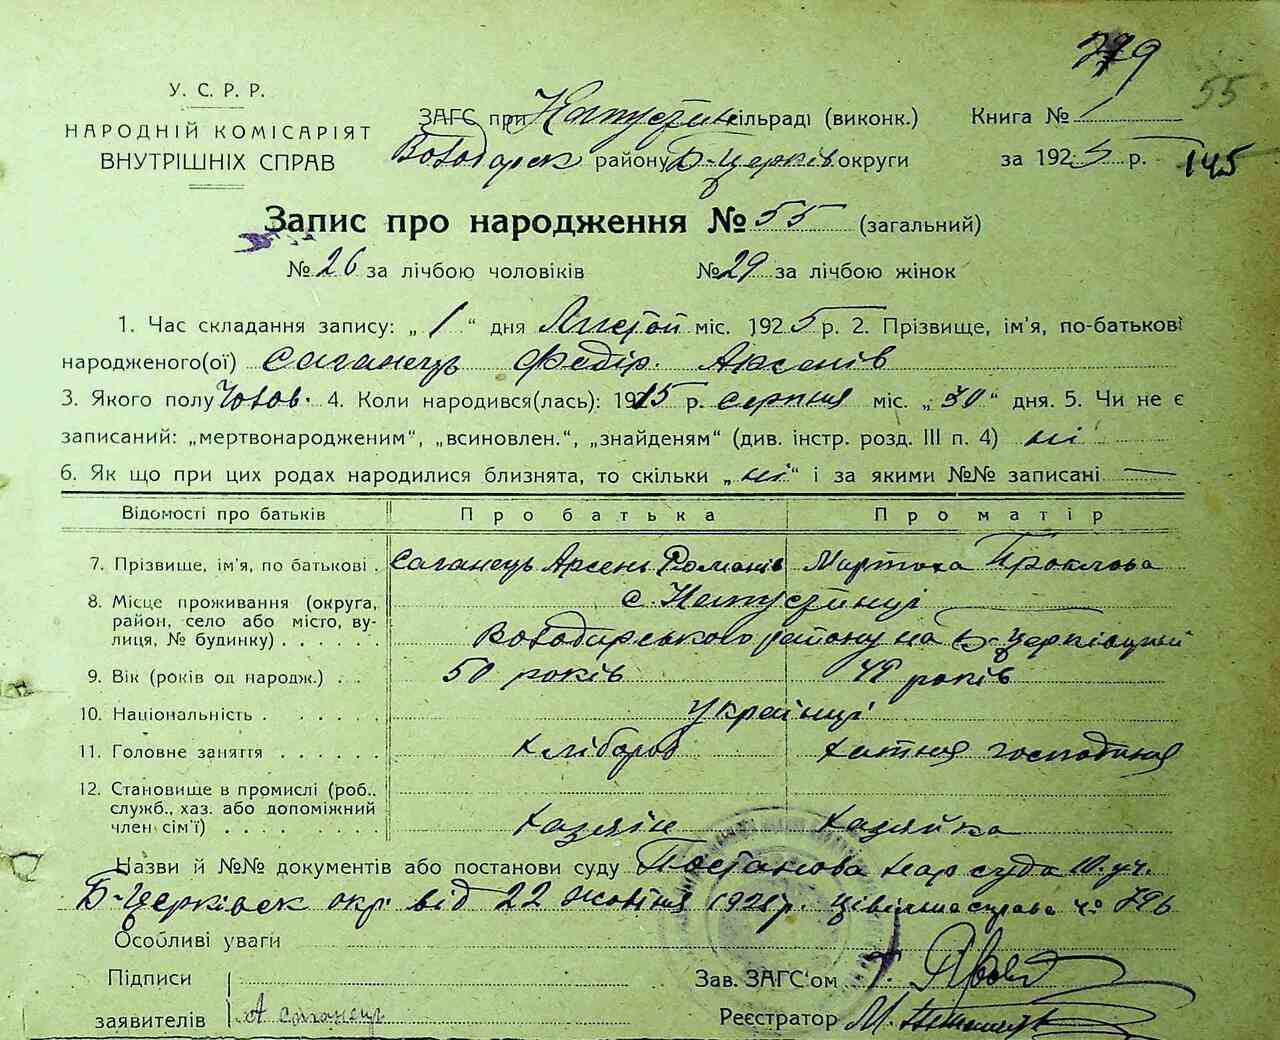 779
55
У. С. Р. Р.
НАРОДНІЙ КОМІСАРІЯТ
ВНУТРІШНІХ СПРАВ
ЗАГС при Капустин сільраді (виконк.)
Володарск району Б-Церків округи
Книга № 1
за 1925 р.
145
Запис про народження № 55 (загальний)
№ 26 за лічбою чоловіків № 29 за лічбою жінок
1. Час складання запису: „ 1 “ дня Листоп міс. 1925 р. 2. Прізвище, ім'я, по-батькові
народженого(ої) Саганець Федір. Арсенів
3. Якого полу Чолов. 4. Коли народився(лась): 1915 р. серпня міс. „ 30 “ дня. 5. Чи не є
записаний: „мертвонародженим“, „всиновлен.“, „знайденям“ (див. інстр. розд. III п. 4) ні
6. Як що при цих родах народилися близнята, то скільки „ ні “ і за якими №№ записані —
Відомості про батьків Про батька Про матір
7. Прізвище, ім'я, по батькові . Саганець Арсень Романів Мартоха Проклова
8. Місце проживання (округа, район, село або місто, вулиця, № будинку) . . . . . с. Капустинці
Володарського району на Б-Церківщині
9. Вік (років од народж.) . . 50 років 49 років
10. Національність . . . . . . Українці
11. Головне заняття . . . . . . Хлібороб Хатня господиня
12. Становище в промислі (роб., служб., хаз. або допоміжний член сім'ї) . . . . . . . Хазяїн Хазяйка
Назви й №№ документів або постанови суду Постанова Нар суда 10 уч.
Б-Церківск окр. від 22 жовтня 1925 р. цівільна справа ч° 796
Особливі уваги
Підписи
заявителів А Саганець
Зав. ЗАГС'ом
Реєстратор М.